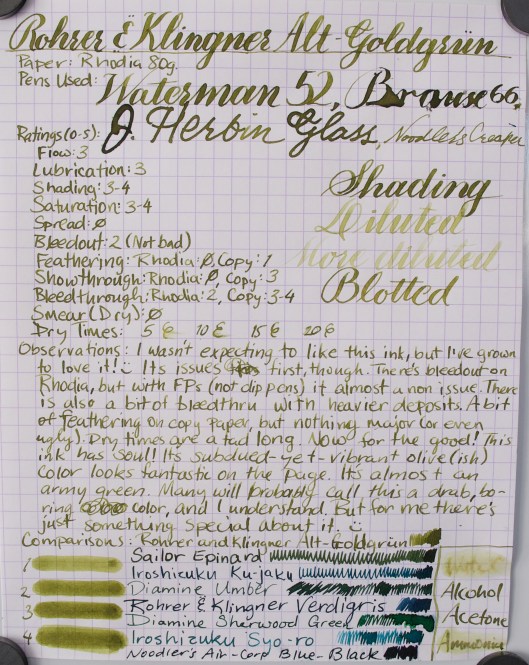 Rohrer & Klingner Alt-Goldgrün
Paper: Rhodia 80g.
Pens Used:
Waterman 52, Brause 66,
J. Herbin Glass, Noodler's Creaper
Ratings(0-5):
Flow: 3
Lubrication: 3
Shading: 3-4
Saturation: 3-4
Spread: Ø
Bleedout: 2 (Not bad)
Feathering: Rhodia: Ø, Copy: 1
Showthrough: Rhodia: Ø, Copy: 3
Bleedthrough: Rhodia: 2, Copy: 3-4
Smear (Dry): Ø
Dry Times: 5 E 10 E 15 E 20 E
Shading
Diluted
More diluted
Blotted
Observations: I wasn't expecting to like this ink, but I've grown
to love it! :) Its issues first, though. There's bleedout on
Rhodia, but with FPs (not dip pens) it almost a non issue. There
is also a bit of bleedthru with heavier deposits. A bit
of feathering on copy paper, but nothing major (or even
ugly). Dry times are a tad long. Now for the good! This
ink has soul! Its subdued-yet-vibrant olive(ish)
color looks fantastic on the page. It's almost an
army green. Many will probably call this a drab, bo-
ring color, and I understand. But for me there's
just something special about it. :)
Comparisons: Rohrer and Klingner Alt-Goldgrün
Sailor Epinard
Iroshizuku Ku-jaku
Diamine Umber
Rohrer & Klingner Verdigris
Diamine Sherwood Green
Iroshizuku Syo-ro
Noodler's Air-Corp Blue-Black
1
2
3
4
Water
Alcohol
Acetone
Ammonia